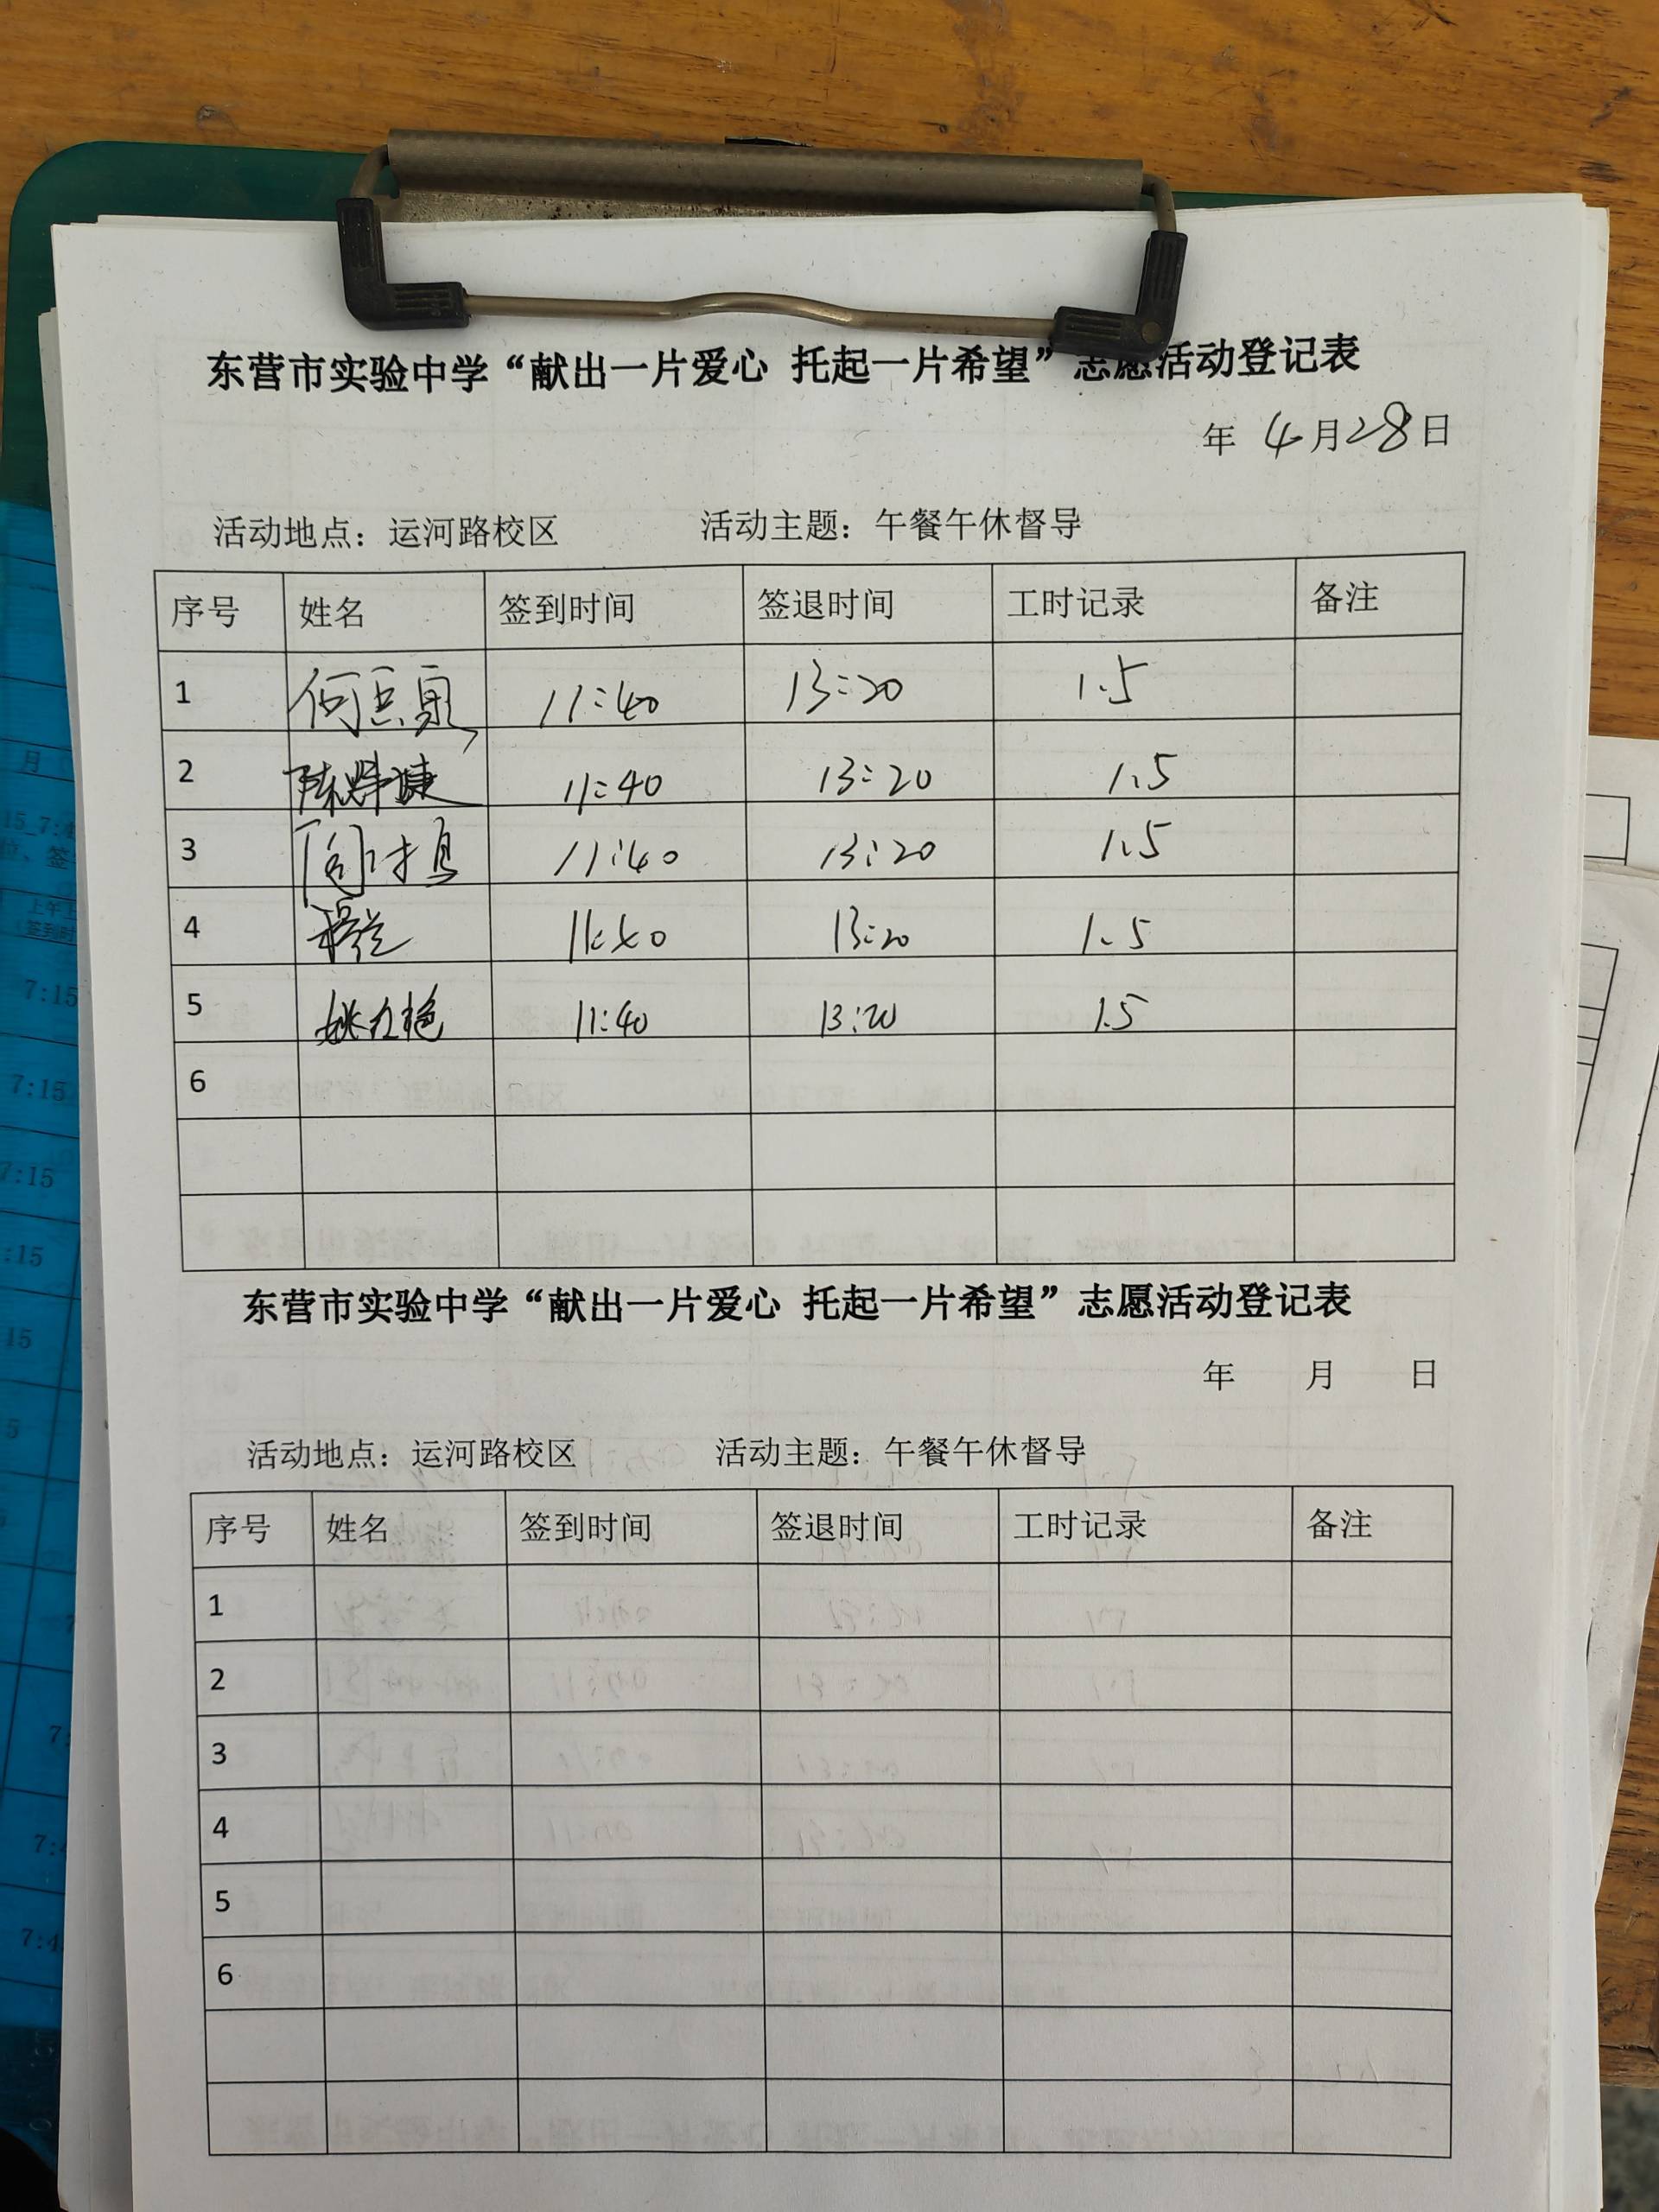 东营市实验中学“献出一片爱心 托起一片希望”志愿活动登记表
年 4月28日
活动地点：运河路校区 活动主题：午餐午休督导
序号 姓名 签到时间 签退时间 工时记录 备注
1 11:40 13:20 1.5
2 11:40 13:20 1.5
3 11:40 13:20 1.5
4 11:40 13:20 1.5
5 姚红艳 11:40 13:20 1.5
6
东营市实验中学“献出一片爱心 托起一片希望”志愿活动登记表
年 月 日
活动地点：运河路校区 活动主题：午餐午休督导
序号 姓名 签到时间 签退时间 工时记录 备注
1
2
3
4
5
6
月
7:15
7:15
7:15
:15
15
5